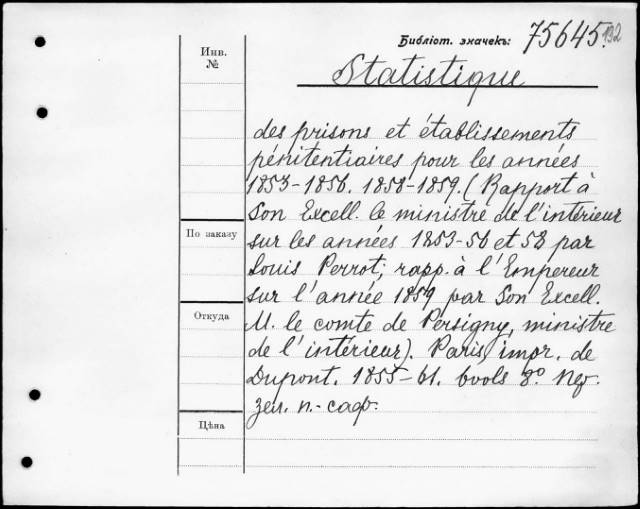 Библіот. значекъ: 75645. 192
Инв.
№
Statistique
des prisons et établissements
pénitentiaires pour les années
1853-1856. 1858-1859. (Rapport à
Son Excell. le ministre de l'intérieur
По заказу
sur les années 1853-56 et 58 par
Louis Perrot; rapp. à l'Empereur
sur l'année 1859 par Son Excell.
Откуда
M. le comte de Persigny, ministre
de l'intérieur). Paris, impr. de
Dupont. 1855-61. 6 vols 8º. Пер.
зел. п.-саф.
Цѣна